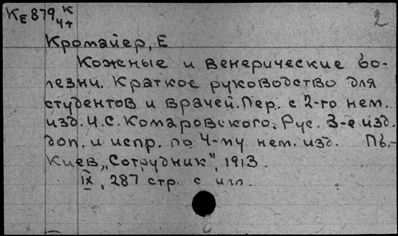 КЕ 879 К/4+
2
Кромайер, Е
Кожные и венерические бо-
лезни. Краткое руководство для
студентов и врачей. Пер. с 2-го нем.
изд. И.С. Комаровского. Рус. 3-е изд.
доп. и испр. по 4-му нем. изд. Пб.-
Киев, „Сотрудник", 1913.
IX, 287 стр. с илл.